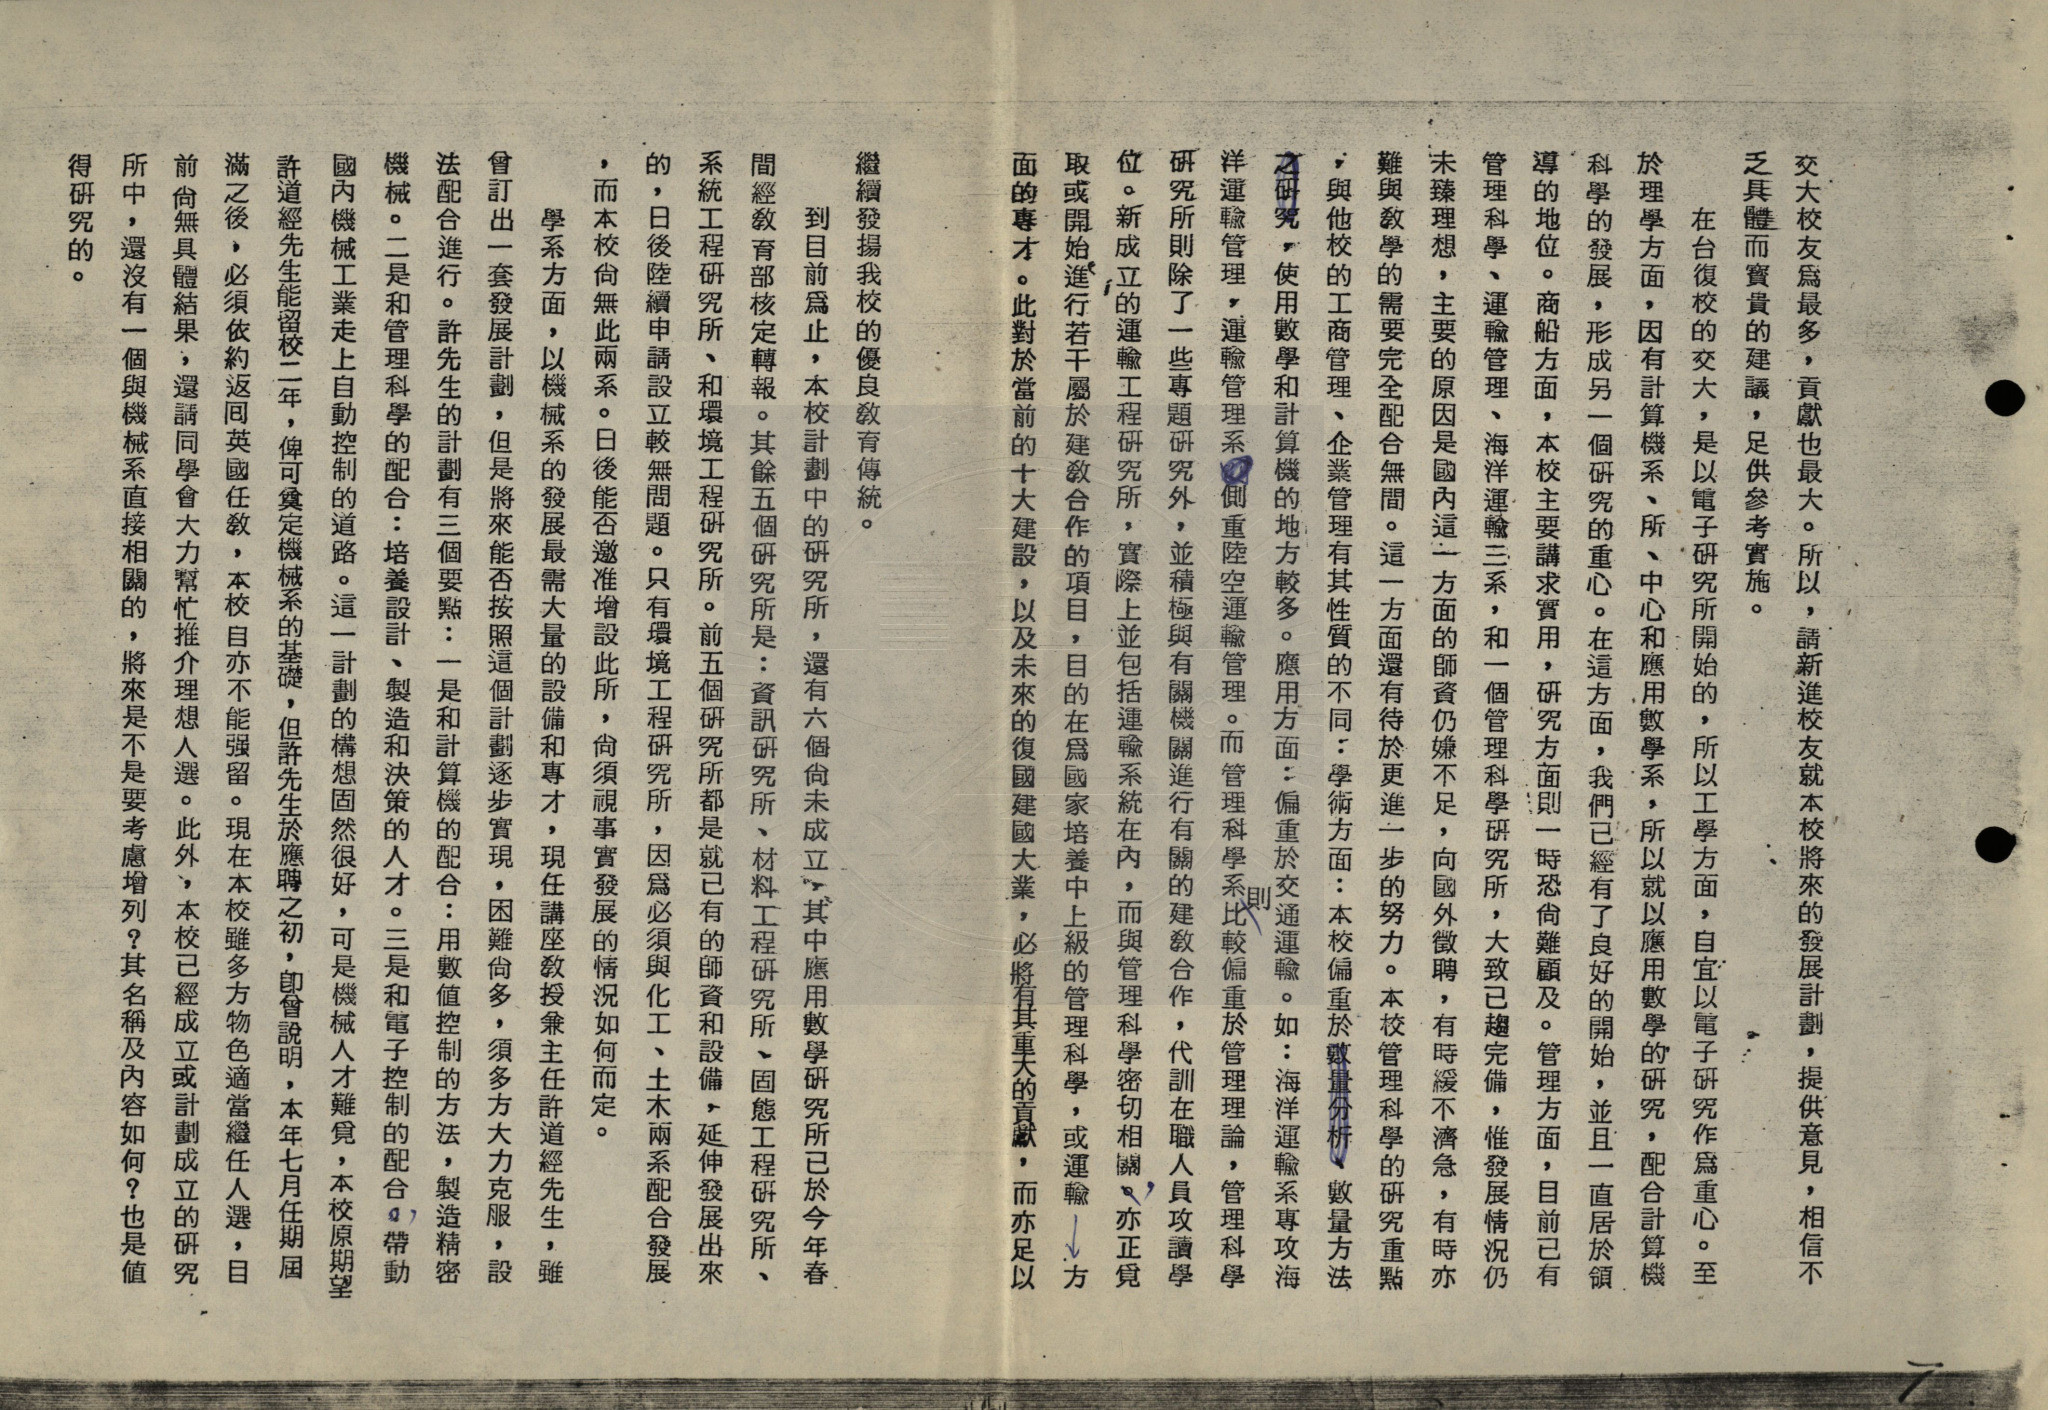 交大校友爲最多，貢獻也最大。所以，請新進校友就本校將來的發展計劃，提供意見，相信不
乏具體而寶貴的建議，足供參考實施。
在台復校的交大，是以電子研究所開始的，所以工學方面，自宜以電子研究作爲重心。至
於理學方面，因有計算機系、所、中心和應用數學系，所以就以應用數學的研究，配合計算機
科學的發展，形成另一個研究的重心。在這方面，我們已經有了良好的開始，並且一直居於領
導的地位。商船方面，本校主要講求實用，研究方面則一時恐尙難顧及。管理方面，目前已有
管理科學、運輸管理、海洋運輸三系，和一個管理科學研究所，大致已趨完備，惟發展情況仍
未臻理想，主要的原因是國內這一方面的師資仍嫌不足，向國外徵聘，有時緩不濟急，有時亦
難與敎學的需要完全配合無間。這一方面還有待於更進一步的努力。本校管理科學的研究重點
，與他校的工商管理、企業管理有其性質的不同：學術方面：本校偏重於數量分析、數量方法
之研究，使用數學和計算機的地方較多。應用方面：偏重於交通運輸。如：海洋運輸系專攻海
洋運輸管理，運輸管理系側重陸空運輸管理。而管理科學系則比較偏重於管理理論，管理科學
研究所則除了一些專題研究外，並積極與有關機關進行有關的建敎合作，代訓在職人員攻讀學
位。新成立的運輸工程研究所，實際上並包括運輸系統在內，而與管理科學密切相關。，亦正覓
取或開始進行若干屬於建敎合作的項目，目的在爲國家培養中上級的管理科學，或運輸方
面的專才。此對於當前的十大建設，以及未來的復國建國大業，必將有其重大的貢獻，而亦足以
繼續發揚我校的優良敎育傳統。
到目前爲止，本校計劃中的研究所，還有六個尙未成立，其中應用數學研究所已於今年春
間經敎育部核定轉報。其餘五個研究所是：資訊研究所、材料工程研究所、固態工程研究所、
系統工程研究所、和環境工程研究所。前五個研究所都是就已有的師資和設備，延伸發展出來
的，日後陸續申請設立較無問題。只有環境工程研究所，因爲必須與化工、土木兩系配合發展
，而本校尙無此兩系。日後能否邀准增設此所，尙須視事實發展的情況如何而定。
學系方面，以機械系的發展最需大量的設備和專才，現任講座敎授兼主任許道經先生，雖
曾訂出一套發展計劃，但是將來能否按照這個計劃逐步實現，困難尙多，須多方大力克服，設
法配合進行。許先生的計劃有三個要點：一是和計算機的配合：用數值控制的方法，製造精密
機械。二是和管理科學的配合：培養設計、製造和決策的人才。三是和電子控制的配合。，帶動
國內機械工業走上自動控制的道路。這一計劃的構想固然很好，可是機械人才難覓，本校原期望
許道經先生能留校二年，俾可奠定機械系的基礎，但許先生於應聘之初，卽曾說明，本年七月任期屆
滿之後，必須依約返回英國任敎，本校自亦不能强留。現在本校雖多方物色適當繼任人選，目
前尙無具體結果，還請同學會大力幫忙推介理想人選。此外，本校已經成立或計劃成立的研究
所中，還沒有一個與機械系直接相關的，將來是不是要考慮增列？其名稱及內容如何？也是值
得研究的。
7